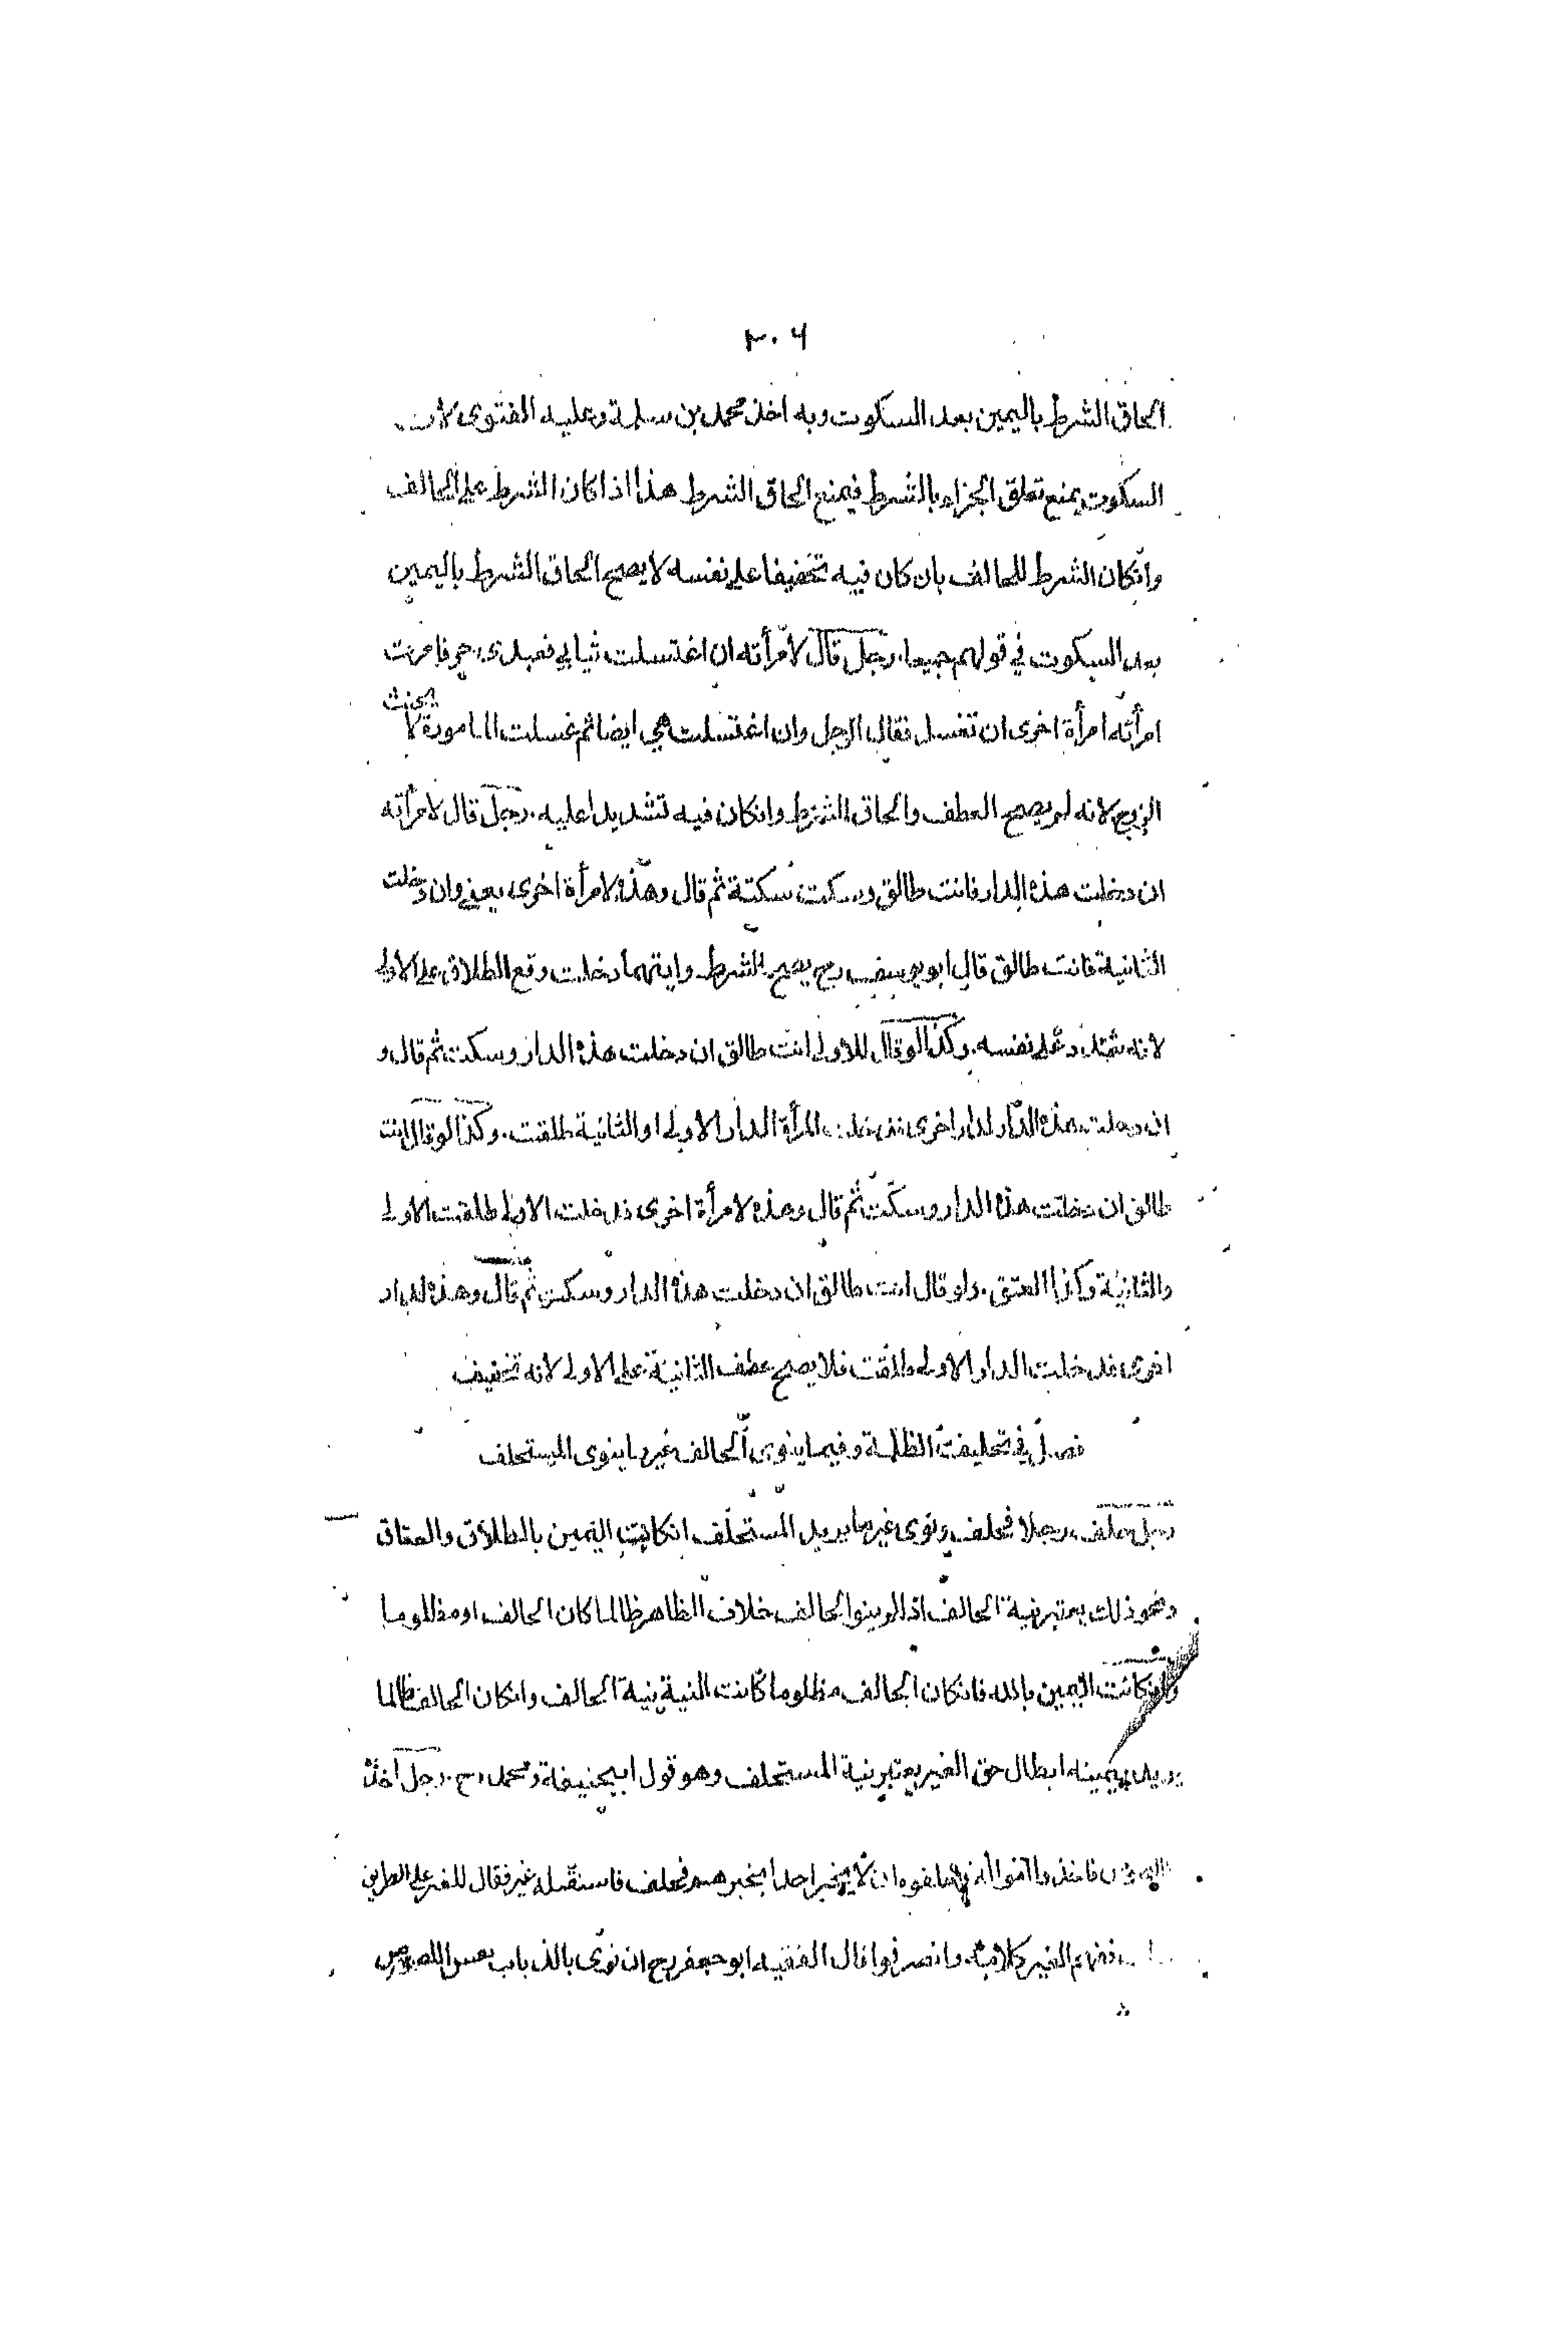 ٢٠٦
الحاق الشرط باليمين بعد السكوت وبه اخذ محمد بن سلمة وعليه الفتوى لان
السكوت يمنع تعلق الجزاء بالشرط فيمنع الحاق الشرط هذا اذا كان الشرط على الحالف
وانكان الشرط للحالف بان كان فيه تخفيفا على نفسه لا يصح الحاق الشرط باليمين
بعد السكوت في قولهم جميعا. رجل قال لامرأته ان اغتسلت ثيابي فعبدى حر فامرت
امرأته امرأة اخرى ان تغسل فقال الرجل وان اغتسلت هي ايضا ثم غسلت المامورة لا يحنث
الزوج لانه لم يصح العطف والحاق الشرط وانكان فيه تشديدا عليه. رجل قال لامرأته
ان دخلت هذه الدار فانت طالق وسكت سكتة ثم قال وهذه لامرأة اخرى يعني وان دخلت
الثانية فانت طالق قال ابو يوسف رح يصح الشرط وايتهما دخلت وقع الطلاق على الاولى
لانه شدد على نفسه. وكذا لو قال للاولى انت طالق ان دخلت هذه الدار وسكت ثم قال و
ان دخلت هذه الدار لدار اخرى فدخلت المرأة الدار الاولى او الثانية طلقت. وكذا لو قال انت
طالق ان دخلت هذه الدار وسكت ثم قال وهذه لامرأة اخرى فدخلت الاولى طلقت الاولى
والثانية وكذا العتق. ولو قال انت طالق ان دخلت هذه الدار وسكت ثم قال وهذه لدار
اخرى فدخلت الدار الاولى طلقت فلا يصح عطف الثانية على الاولى لانه تخفيف
فصل في تحليف الظلمة وفيما ينوى الحالف غير ما ينوى المستحلف
رجل حلف رجلا فحلف ونوى غير ما يريد المستحلف انكانت اليمين بالطلاق والعتاق
ونحو ذلك يعتبر نية الحالف اذا لم ينو الحالف خلاف الظاهر ظالما كان الحالف او مظلوما
وان كانت اليمين بالله فانكان الحالف مظلوما كانت النية نية الحالف وانكان الحالف ظالما
يريد بيمينه ابطال حق الغير يعتبر نية المستحلف وهو قول ابيحنيفة ومحمد رح. رجل اخذه
اللصوص فاخذوا اموا له وحلفوه ان لا يخبر احدا بخبرهم فحلف فاستقبله عير فقال للعير على الطريق
ففهم العير كلامه وانصرفوا قال الفقيه ابو جعفر رح ان نوى بالذباب بعض اللصوص